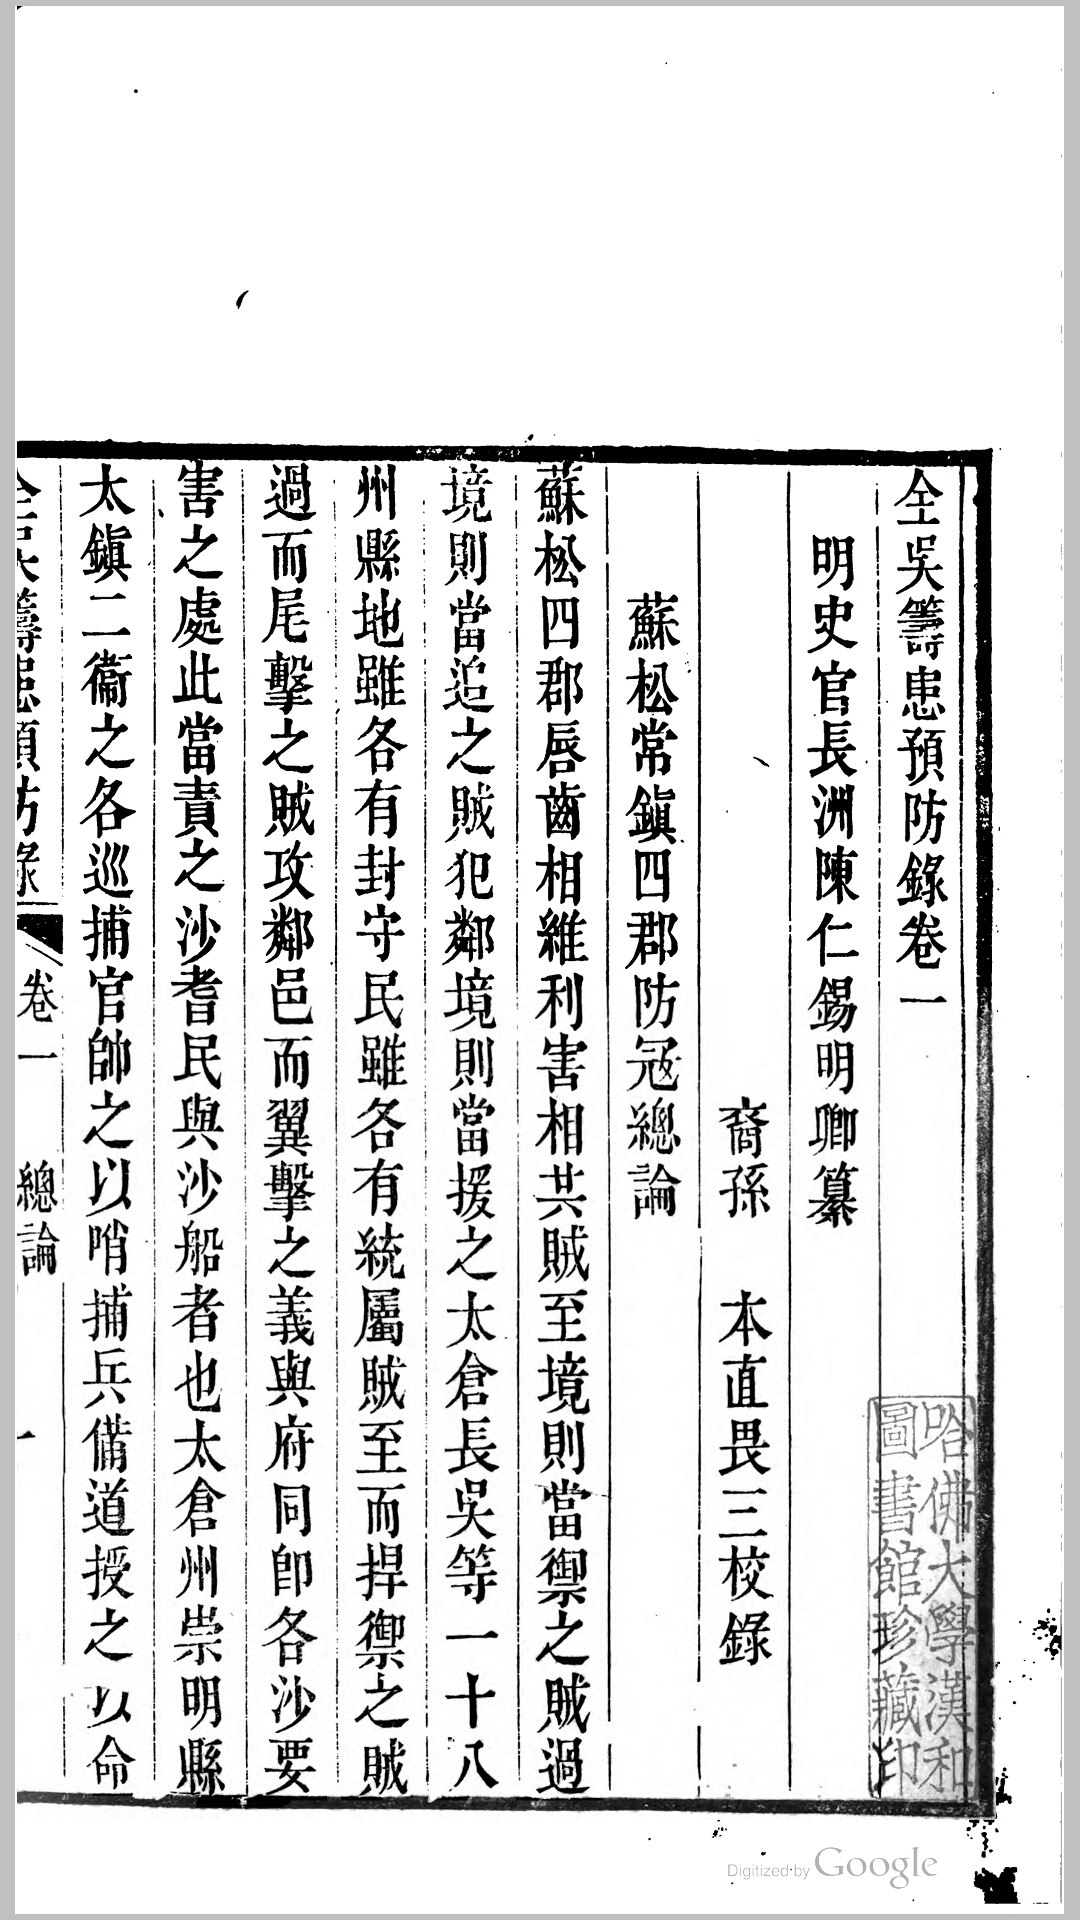 全吳籌患預防錄卷一
明史官長洲陳仁錫明卿纂
裔孫　本直畏三校錄
蘇松常鎭四郡防冦總論
蘇松四郡唇齒相維利害相共賊至境則當禦之賊過
境則當追之賊犯鄰境則當援之太倉長吳等一十八
州縣地雖各有封守民雖各有統屬賊至而捍禦之賊
過而尾擊之賊攻鄰邑而翼擊之義與府同卽各沙要
害之處此當責之沙耆民與沙船者也太倉州崇明縣
太鎭二衞之各巡捕官帥之以哨捕兵備道授之以命
全吳籌患預防錄
卷一
總論
一
哈佛大學漢和
圖書館珍藏印
Digitized by Google